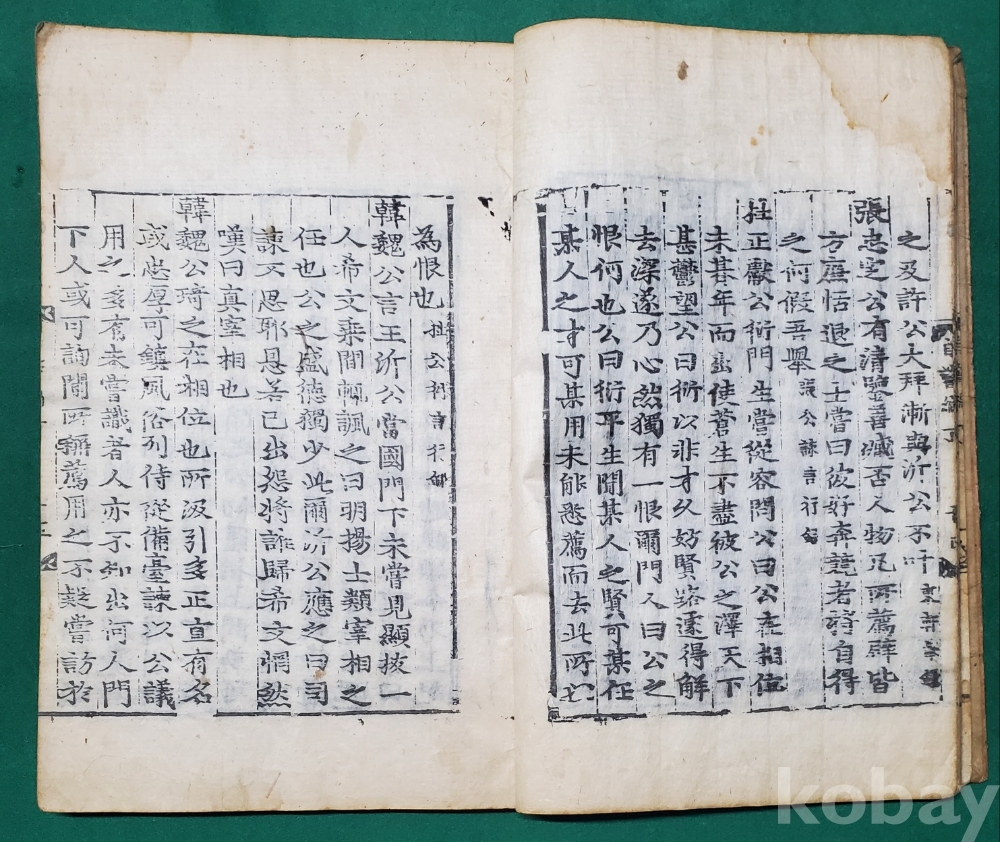 之及許公大拜漸與沂公不叶 東軒筆錄
張忠定公有清鑒善臧否人物凡所薦辟皆
方廉恬退之士嘗曰彼好奔競者將自得
之何假吾舉 張公諫言行錄
杜正獻公衍門生嘗從容問公曰公在相位
未朞年而出使蒼生不盡被公之澤天下
甚鬱望公曰衍以非才久妨賢路遽得解
去深遂乃心然獨有一恨爾門人曰公之
恨何也公曰衍平生聞某人之賢可某任
某人之才可某用未能悉薦而去此所以
為恨也
韓魏公言王沂公當國門下未嘗見顯拔一
人希文乘間輒諷之曰明揚士類宰相之
任也公之盛德獨少此爾沂公應之曰司
諫不思耶恩若己出怨將誰歸希文惘然
嘆曰真宰相也
韓魏公琦之在相位也所汲引多正直有名
或忠厚可鎮風俗列侍從備臺諫以公議
用之多有未嘗識者人亦不知出何人門
下人或可詢聞所稱薦用之不疑嘗訪於
kobay